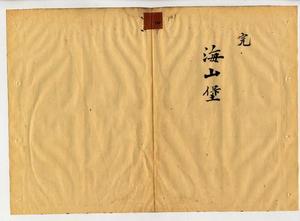 完
海山堡